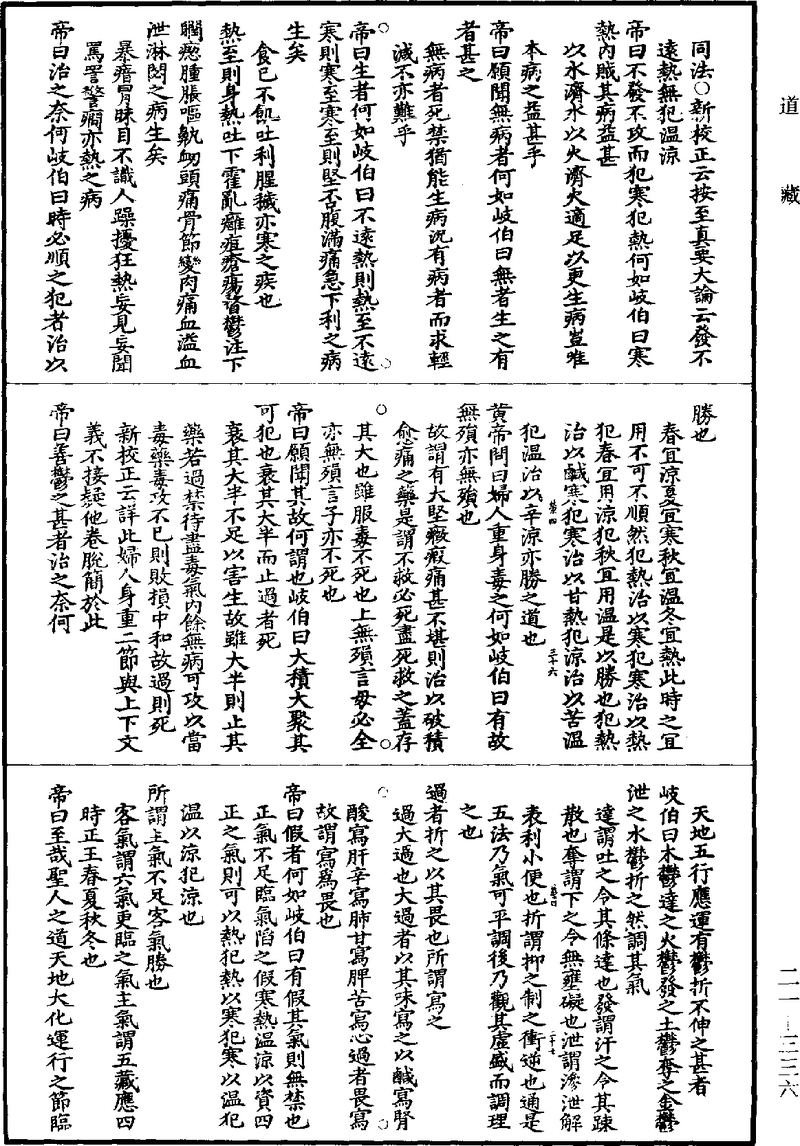 道藏
同法○新校正云按至真要大論云發不
遠熱無犯溫涼
帝曰不發不攻而犯寒犯熱何如岐伯曰寒
熱內賊其病益甚
以水濟水以火濟火適足以更生病豈唯
本病之益甚乎
帝曰願聞無病者何如岐伯曰無者生之有
者甚之
無病者死禁猶能生病況有病者而求輕
減不亦難乎
帝曰生者何如岐伯曰不遠熱則熱至不遠
寒則寒至寒至則堅否腹滿痛急下利之病
生矣
食已不飢吐利腥穢亦寒之疾也
熱至則身熱吐下霍亂癰疽瘡瘍瞀鬱注下
瞤瘛腫脹嘔鼽衂頭痛骨節變肉痛血溢血
泄淋閟之病生矣
暴瘖冒昧目不識人躁擾狂熱妄見妄聞
罵詈驚癎亦熱之病
帝曰治之奈何岐伯曰時必順之犯者治以
勝也
春宜涼夏宜寒秋宜溫冬宜熱此時之宜
用不可不順然犯熱治以寒犯寒治以熱
犯春宜用涼犯秋宜用溫是以勝也犯熱
治以鹹寒犯寒治以甘熱犯涼治以苦溫
犯溫治以辛涼亦勝之道也
黃帝問曰婦人重身毒之何如岐伯曰有故
無殞亦無殞也
故謂有大堅癥瘕痛甚不堪則治以破積
愈痛之藥是謂不救必死盡死救之蓋存
其大也雖服毒不死也上無殞言母必全
亦無殞言子亦不死也
帝曰願聞其故何謂也岐伯曰大積大聚其
可犯也衰其大半而止過者死
衰其大半不足以害生故雖大半則止其
藥若過禁待盡毒氣內餘無病可攻以當
毒藥毒攻不已則敗損中和故過則死
新校正云詳此婦人身重二節與上下文
義不接疑他卷脫簡於此
帝曰善鬱之甚者治之奈何
天地五行應運有鬱折不伸之甚者
岐伯曰木鬱達之火鬱發之土鬱奪之金鬱
泄之水鬱折之然調其氣
達謂吐之令其條達也發謂汗之令其疎
散也奪謂下之令無壅礙也泄謂滲泄解
表利小便也折謂抑之制之衝逆也通是
五法乃氣可平調後乃觀其虛盛而調理
之也
過者折之以其畏也所謂寫之
過大過也大過者以其味寫之以鹹寫腎
酸寫肝辛寫肺甘寫脾苦寫心過者畏寫
故謂寫爲畏也
帝曰假者何如岐伯曰有假其氣則無禁也
正氣不足臨氣諂之假寒熱溫涼以資四
正之氣則可以熱犯熱以寒犯寒以溫犯
溫以涼犯涼也
所謂主氣不足客氣勝也
客氣謂六氣更臨之氣主氣謂五藏應四
時正王春夏秋冬也
帝曰至哉聖人之道天地大化運行之節臨
二一—三三六